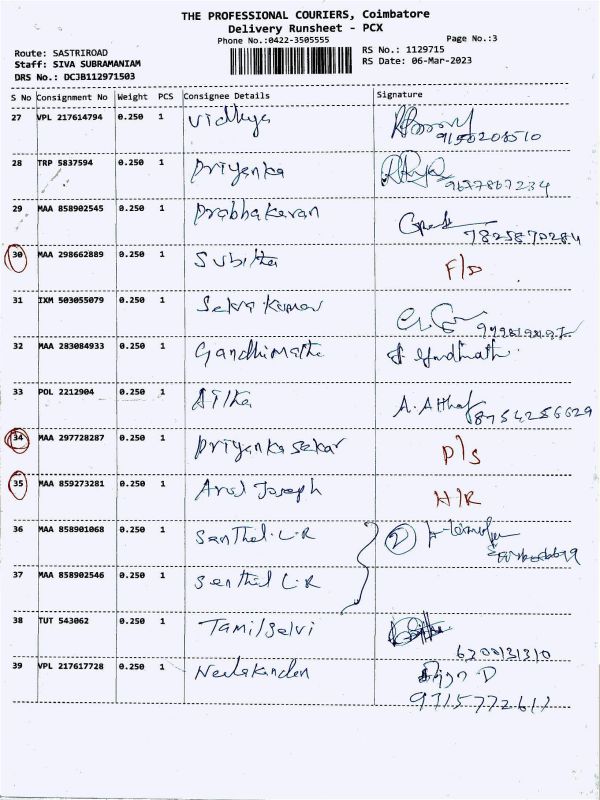 THE PROFESSIONAL COURIERS, Coimbatore
Delivery Runsheet - PCX
Phone No.:0422-3505555 Page No.:3
Route: SASTRIROAD RS No.: 1129715
Staff: SIVA SUBRAMANIAM RS Date: 06-Mar-2023
DRS No.: DCJB112971503
S No Consignment No Weight PCS Consignee Details Signature
27 VPL 217614794 0.250 1 Vidhya
28 TRP 5837594 0.250 1 Priyenka
9677867234
29 MAA 858902545 0.250 1 Prabhakaran
7825870284
30 MAA 298662889 0.250 1 Subitha F/D
31 IXM 503055079 0.250 1 Selva Kumar
32 MAA 283084933 0.250 1 Gandhimathi
33 POL 2212904 0.250 1
A. Atthaf 8754256629
34 MAA 297728287 0.250 1 Priyanka Sekar P/S
35 MAA 859273281 0.250 1 Arul Joseph H/R
36 MAA 858901068 0.250 1 Santhil. L.R 2
37 MAA 858902546 0.250 1 Senthil L.R
38 TUT 543062 0.250 1 Tamilselvi
6200131310
39 VPL 217617728 0.250 1 Neelakanden
9715772611